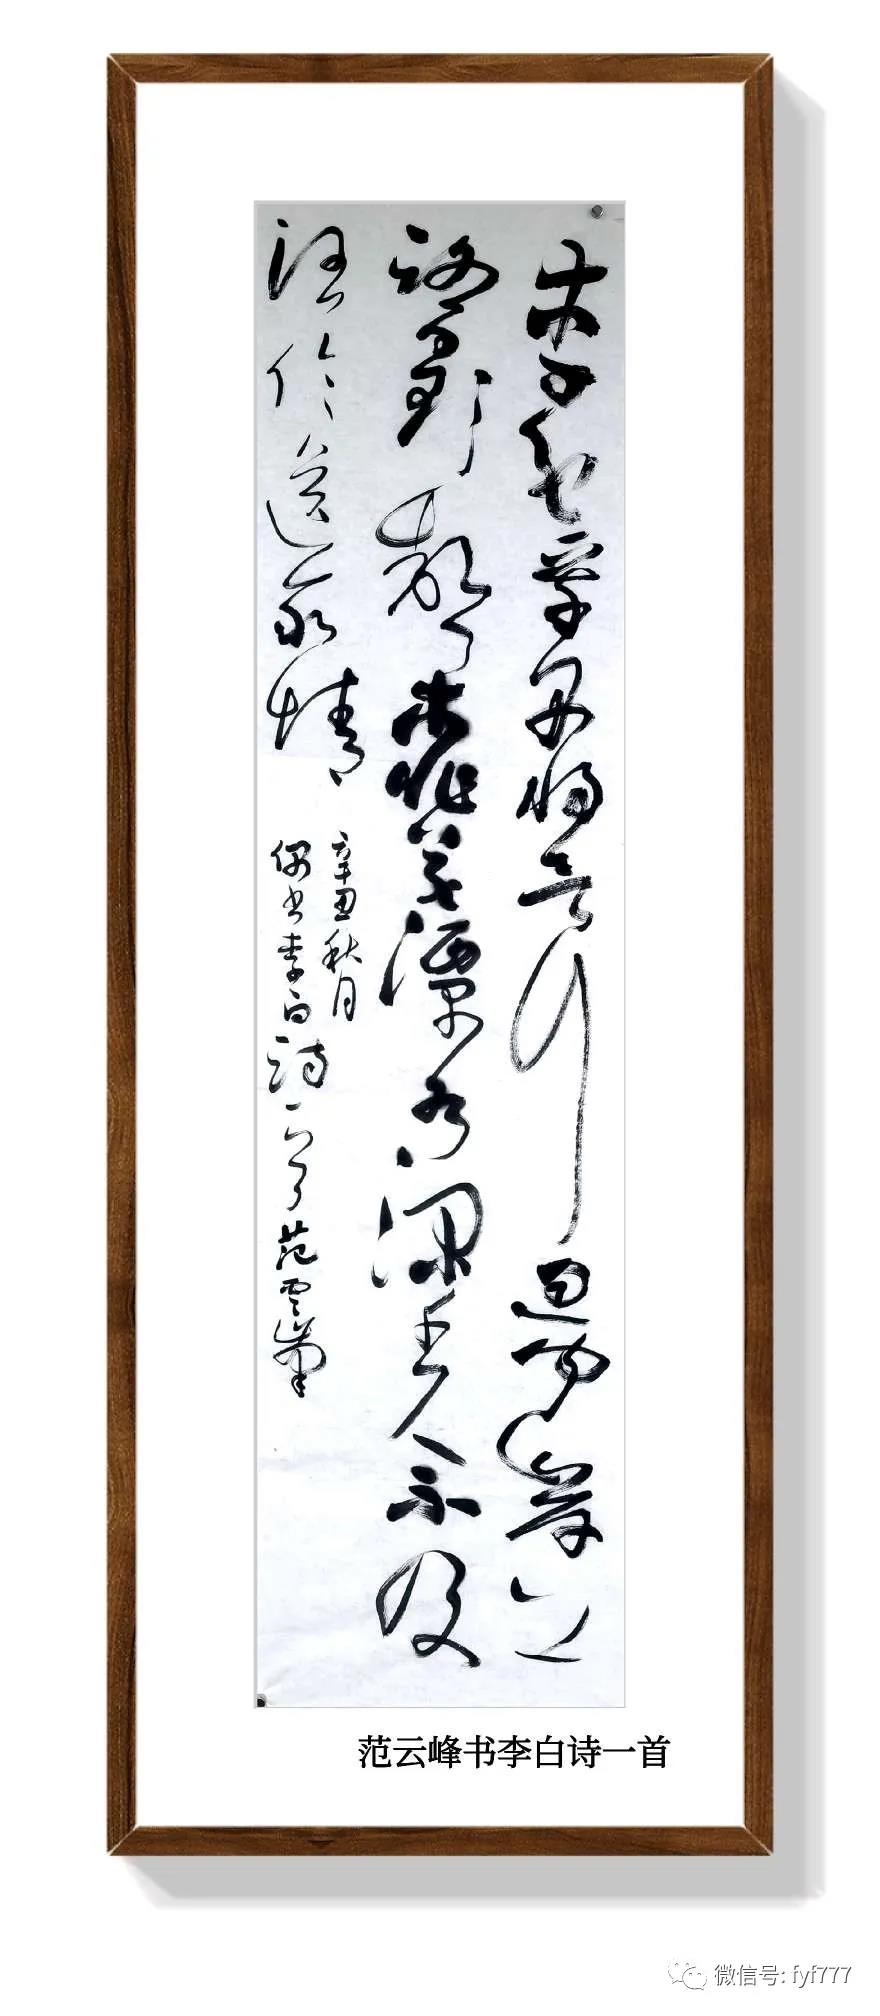 李白乘舟將欲行忽聞岸上
踏歌聲桃花潭水深千尺不及
汪倫送我情
辛丑秋月
偶书李白詩一首范雲峯
范云峰书李白诗一首
微信号: fyf777